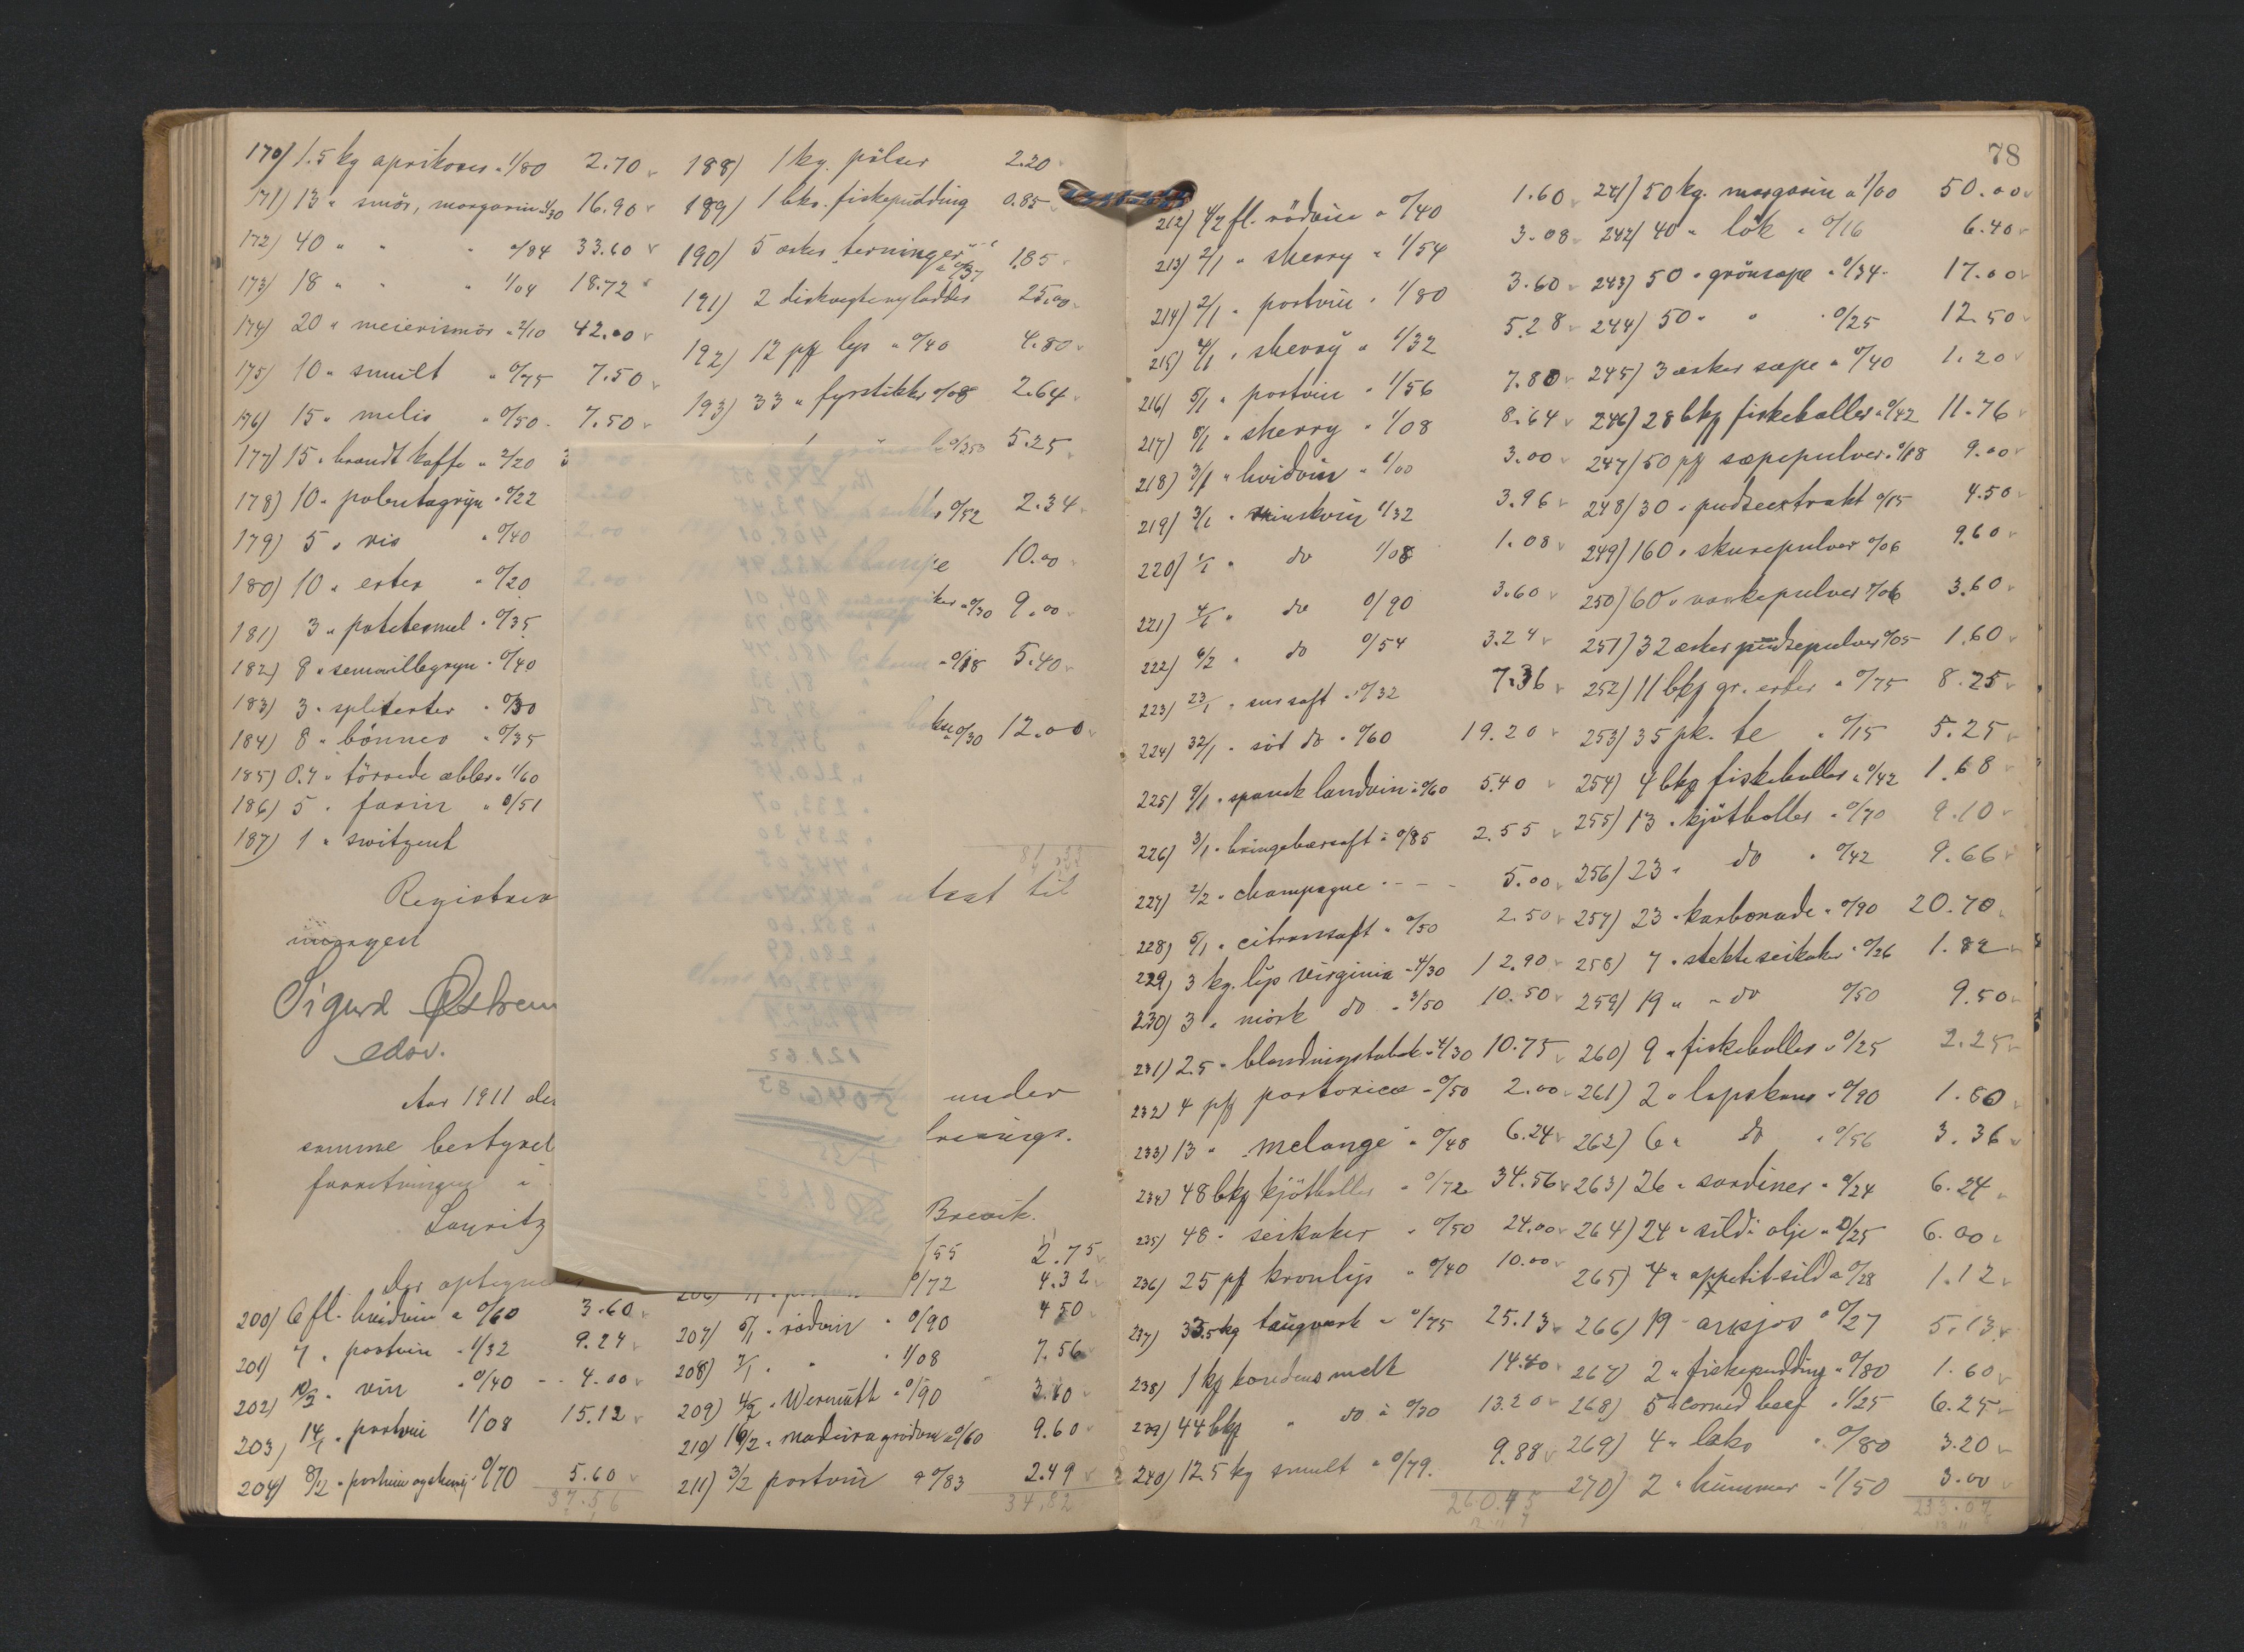 170) 1.5 kg aprikoser „ 1/80 2.70
171) 13 „ smör, margarin 1/30 16.90
172) 40 „ „ „ 0/84 33.60
173) 18 „ „ „ 1/04 18.72
174) 20 „ meierismör „ 2/10 42.00
175) 10 „ smult „ 0/75 7.50
176) 15 „ melis „ 0/50 7.50
177) 15 „ brændt kaffe „ 2/20 3
178) 10 „ polentagryn „ 0/22
179) 5 „ ris „ 0/40
180) 10 „ erter „ 0/20
181) 3 „ potetesmel „ 0/35
182) 8 „ semouillegryn „ 0/40
183) 3 „ spliterter „ 0/30
184) 8 „ bönner „ 0/35
185) 0.7 „ törrede æbler „ 1/60
186) 5 „ farin „ 0/51
187) 1 „ switzent
Registrer
morgen
Sigurd Østrem
edsv.
Aar 1911 den
samme bestyrel
forretningen i
Lauritz
Der optegne
200) 6 fl. hvidvin a 0/60 3.60
201) 7 „ portvin „ 1/32 9.24
202) 10/2 „ vin „ 0/40 4.00
203) 14/1 „ portvin 1/08 15.12
204) 8/2 „ portvin og sherry „ 0/70 5.60
37.56
188) 1 kg. pölser 2.20
189) 1 bks. fiskepudding 0.85
190) 5 æsker terninger a 0/37 1.85
191) 2 diskvegte 25.00
192) 12 pk lys „ 0/40 4.80
193) 33 „ fyrstikker 0/08 2.64
5.25
0/52 2.34
10.00
0/30 9.00
„ 0/18 5.40
0/30 12.00
tat til
under
Brevik.
/55 2.75
0/72 4.32
207) 5/1 „ rödvin „ 0/90 4.50
208) 7/1 „ „ „ 1/08 7.56
209) 4/2 „ Wermuth „ 0/90 3.60
210) 16/2 „ madeira a 0/60 9.60
211) 3/2 portvin a 0/83 2.49
34,82
78
212) 4/2 fl. rödvin a 0/40 1.60
213) 2/1 „ sherry „ 1/54 3.08
214) 2/1 „ portvin „ 1/80 3.60
215) 4/1 „ sherry „ 1/32 5.28
216) 5/1 „ portvin „ 1/56 7.80
217) 8/1 „ sherry „ 1/08 8.64
218) 3/1 „ hvidvin „ 1/00 3.00
219) 3/1 „ rinskvin 1/32 3.96
220) 1/1 „ do 1/08 1.08
221) 4/1 „ do 0/90 3.60
222) 6/2 „ do 0/54 3.24
223) 23/1 „ sur saft „ 0/32 7.36
224) 32/1 „ söt do „ 0/60 19.20
225) 9/1 „ spansk landvin „ 0/60 5.40
226) 3/1 „ bringebærsaft „ 0/85 2.55
227) 2/2 „ champagne 5.00
228) 5/1 „ citronsaft „ 0/50 2.50
229) 3 kg. lys virginia „ 4/30 12.90
230) 3 „ mörk do „ 3/50 10.50
231) 2.5 „ blandningstobak „ 4/30 10.75
232) 4 pk portorico „ 0/50 2.00
233) 13 „ melange „ 0/48 6.24
234) 48 bks kjötboller „ 0/72 34.56
235) 48 „ seikaker „ 0/50 24.00
236) 25 pk kronlys „ 0/40 10.00
237) 33.5 kg taugverk „ 0/75 25.13
238) 1 ks kondens melk 14.40
239) 44 bks „ do a 0/30 13.20
240) 12.5 kg smult „ 0/79. 9.88
260.45
241) 50 kg. margarin a 1/00 50.00
242) 40 „ lök „ 0/16 6.40
243) 50 „ grönsæpe „ 0/34 17.00
244) 50 „ „ „ 0/25 12.50
245) 3 æsker sæpe „ 0/40 1.20
246) 28 bks fiskeboller „ 0/42 11.76
247) 50 pk sæpepulver „ 0/18 9.00
248) 30 „ pudseextrakt 0/15 4.50
249) 160 „ skurepulver 0/06 9.60
250) 60 „ vaskepulver 0/06 3.60
251) 32 æsker pudsepulver 0/05 1.60
252) 11 bks gr. erter „ 0/75 8.25
253) 35 pk. te „ 0/15 5.25
254) 4 bks fiskeboller „ 0/42 1.68
255) 13 „ kjötboller „ 0/70 9.10
256) 23 „ do „ 0/42 9.66
257) 23 „ karbonade „ 0/90 20.70
258) 7 „ stekte seikaker „ 0/26 1.82
259) 19 „ „ do 0/50 9.50
260) 9 „ fiskeboller „ 0/25 2.25
261) 2 „ lapskaus „ 0/90 1.80
262) 6 „ do „ 0/56 3.36
263) 26 „ sardiner „ 0/24 6.24
264) 24 „ sild i olje „ 0/25 6.00
265) 4 „ appetit-sild a 0/28 1.12
266) 19 „ ansjos a 0/27 5.13
267) 2 „ fiskepudding „ 0/80 1.60
268) 5 „ corned beef „ 1/25 6.25
269) 4 „ laks „ 0/80 3.20
270) 2 „ hummer „ 1/50 3.00
233.07